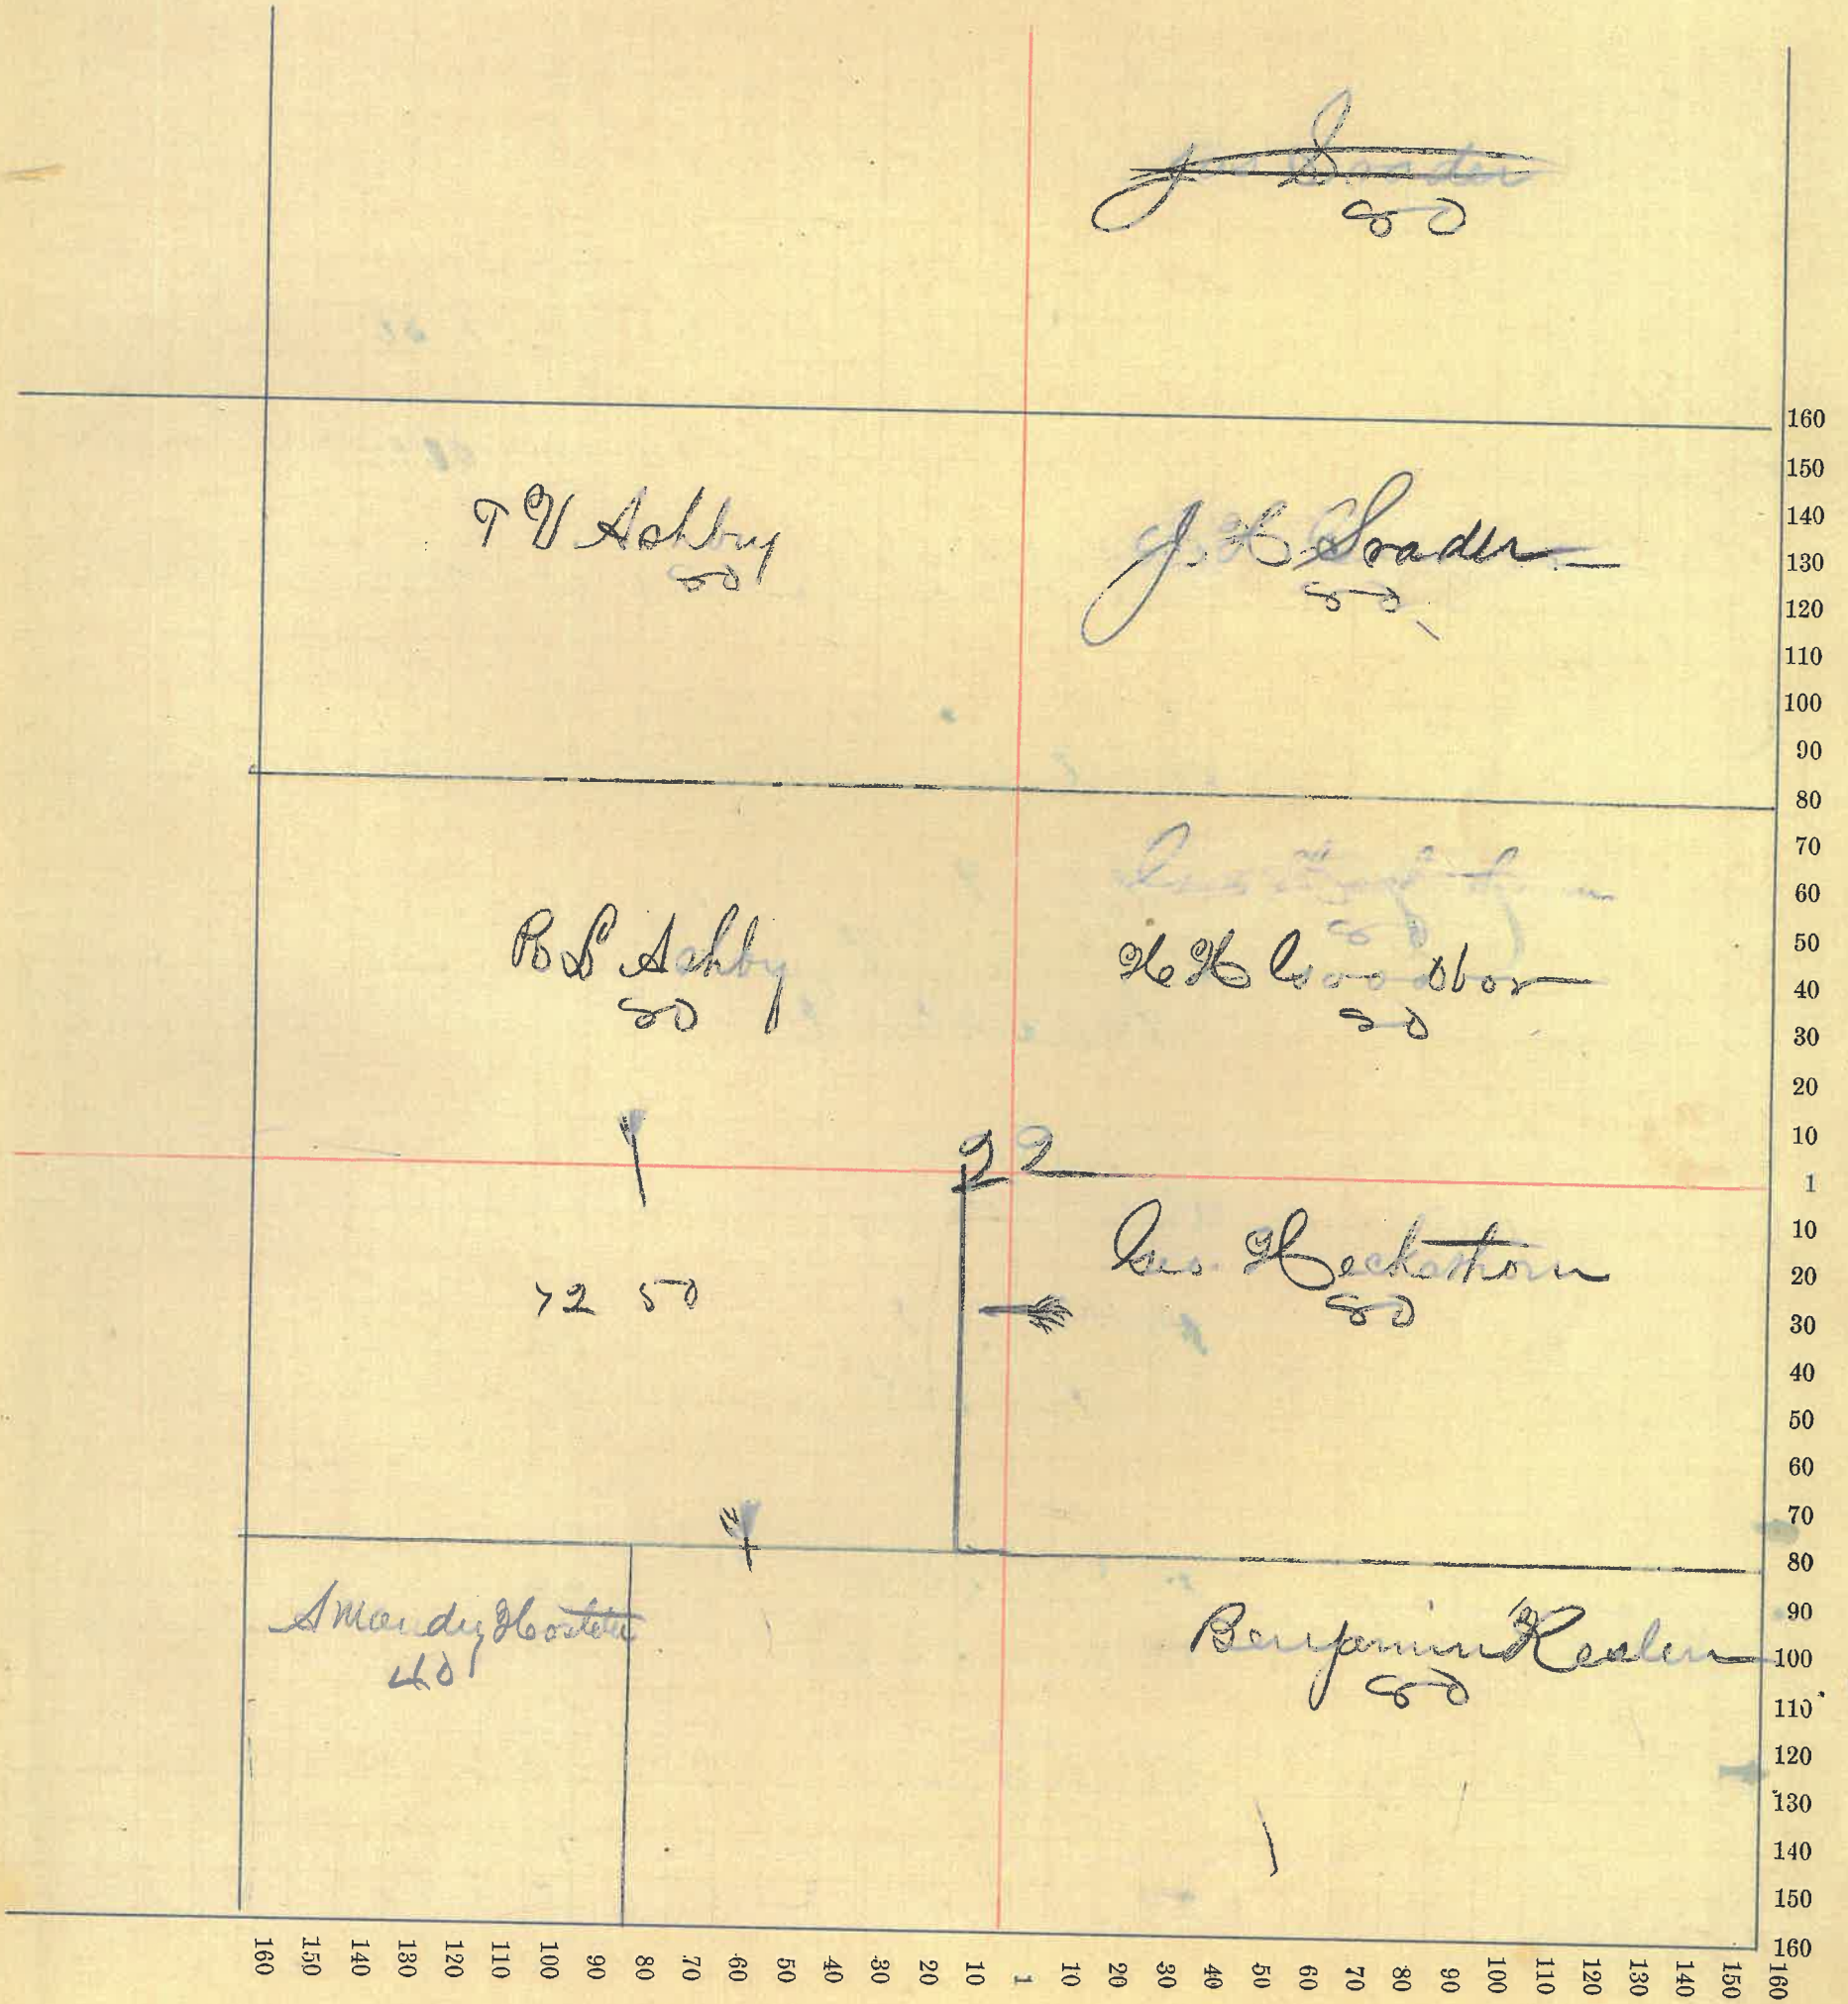 80
T V Ashby
80
J. H. Srader
80
R L Ashby
80
80
H H
80
22
Geo. Heckethorn
80
72 50
Amandy Hostetter
40
Benjamin Kesler
80
160
150
140
130
120
110
100
90
80
70
60
50
40
30
20
10
1
10
20
30
40
50
60
70
80
90
100
110
120
130
140
150
160
160 150 140 130 120 110 100 90 80 70 60 50 40 30 20 10 1 10 20 30 40 50 60 70 80 90 100 110 120 130 140 150 160